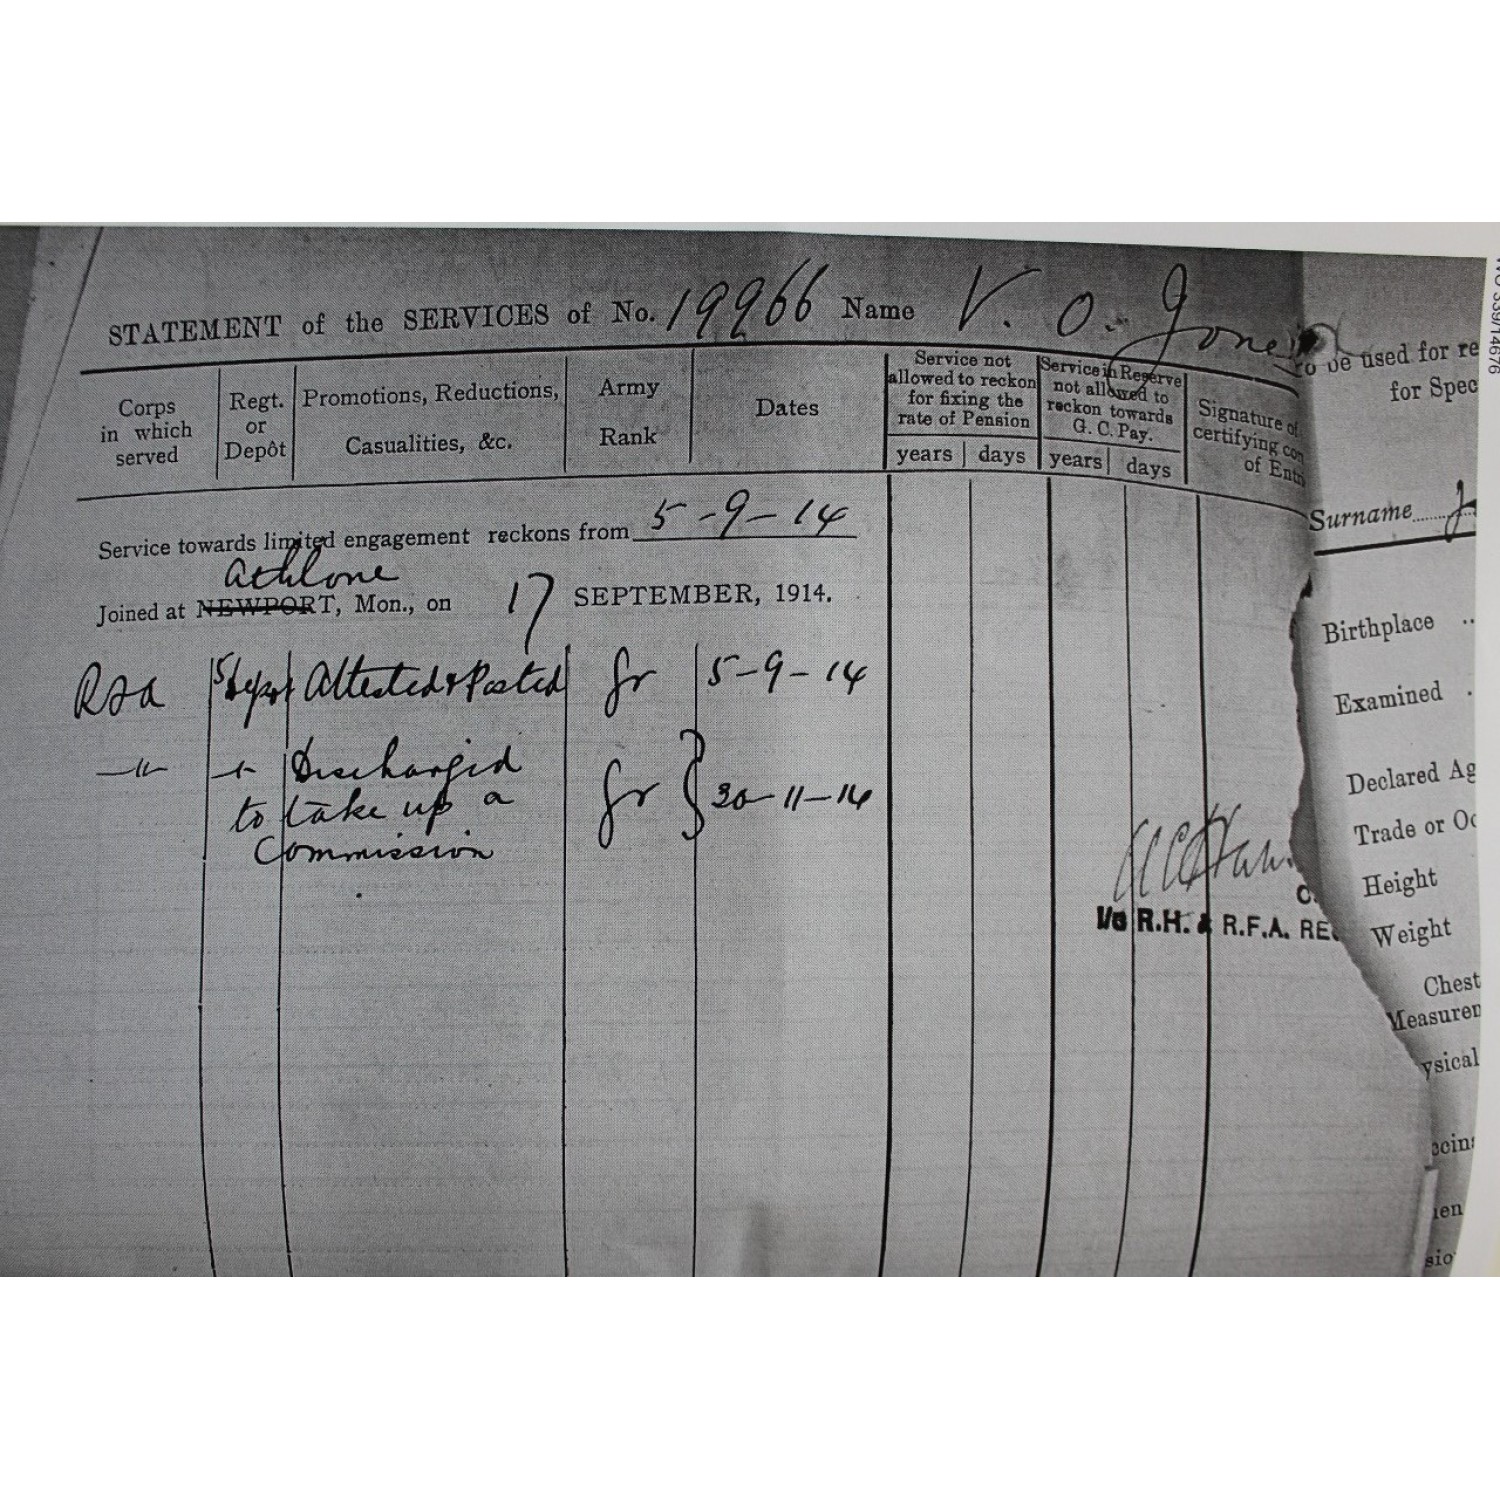 STATEMENT of the SERVICES of No. 19966 Name V. O. Jones
Corps in which served
Regt. or Depôt
Promotions, Reductions, Casualities, &c.
Army Rank
Dates
Service not allowed to reckon for fixing the rate of Pension
years days
Service in Reserve not allowed to reckon towards G. C. Pay.
years days
Signature of
certifying
of
Service towards limited engagement reckons from 5-9-14
Athlone
Joined at NEWPORT, Mon., on 17 SEPTEMBER, 1914.
RFA 5 Depot Attested & Posted Gr 5-9-14
-"- -"- Discharged
to take up a Gr 30-11-14
Commission
I/c R.H. & R.F.A.
be used for
for
Surname
Birthplace ..
Examined .
Declared
Trade or
Height
Weight
Chest
WO 339/14676